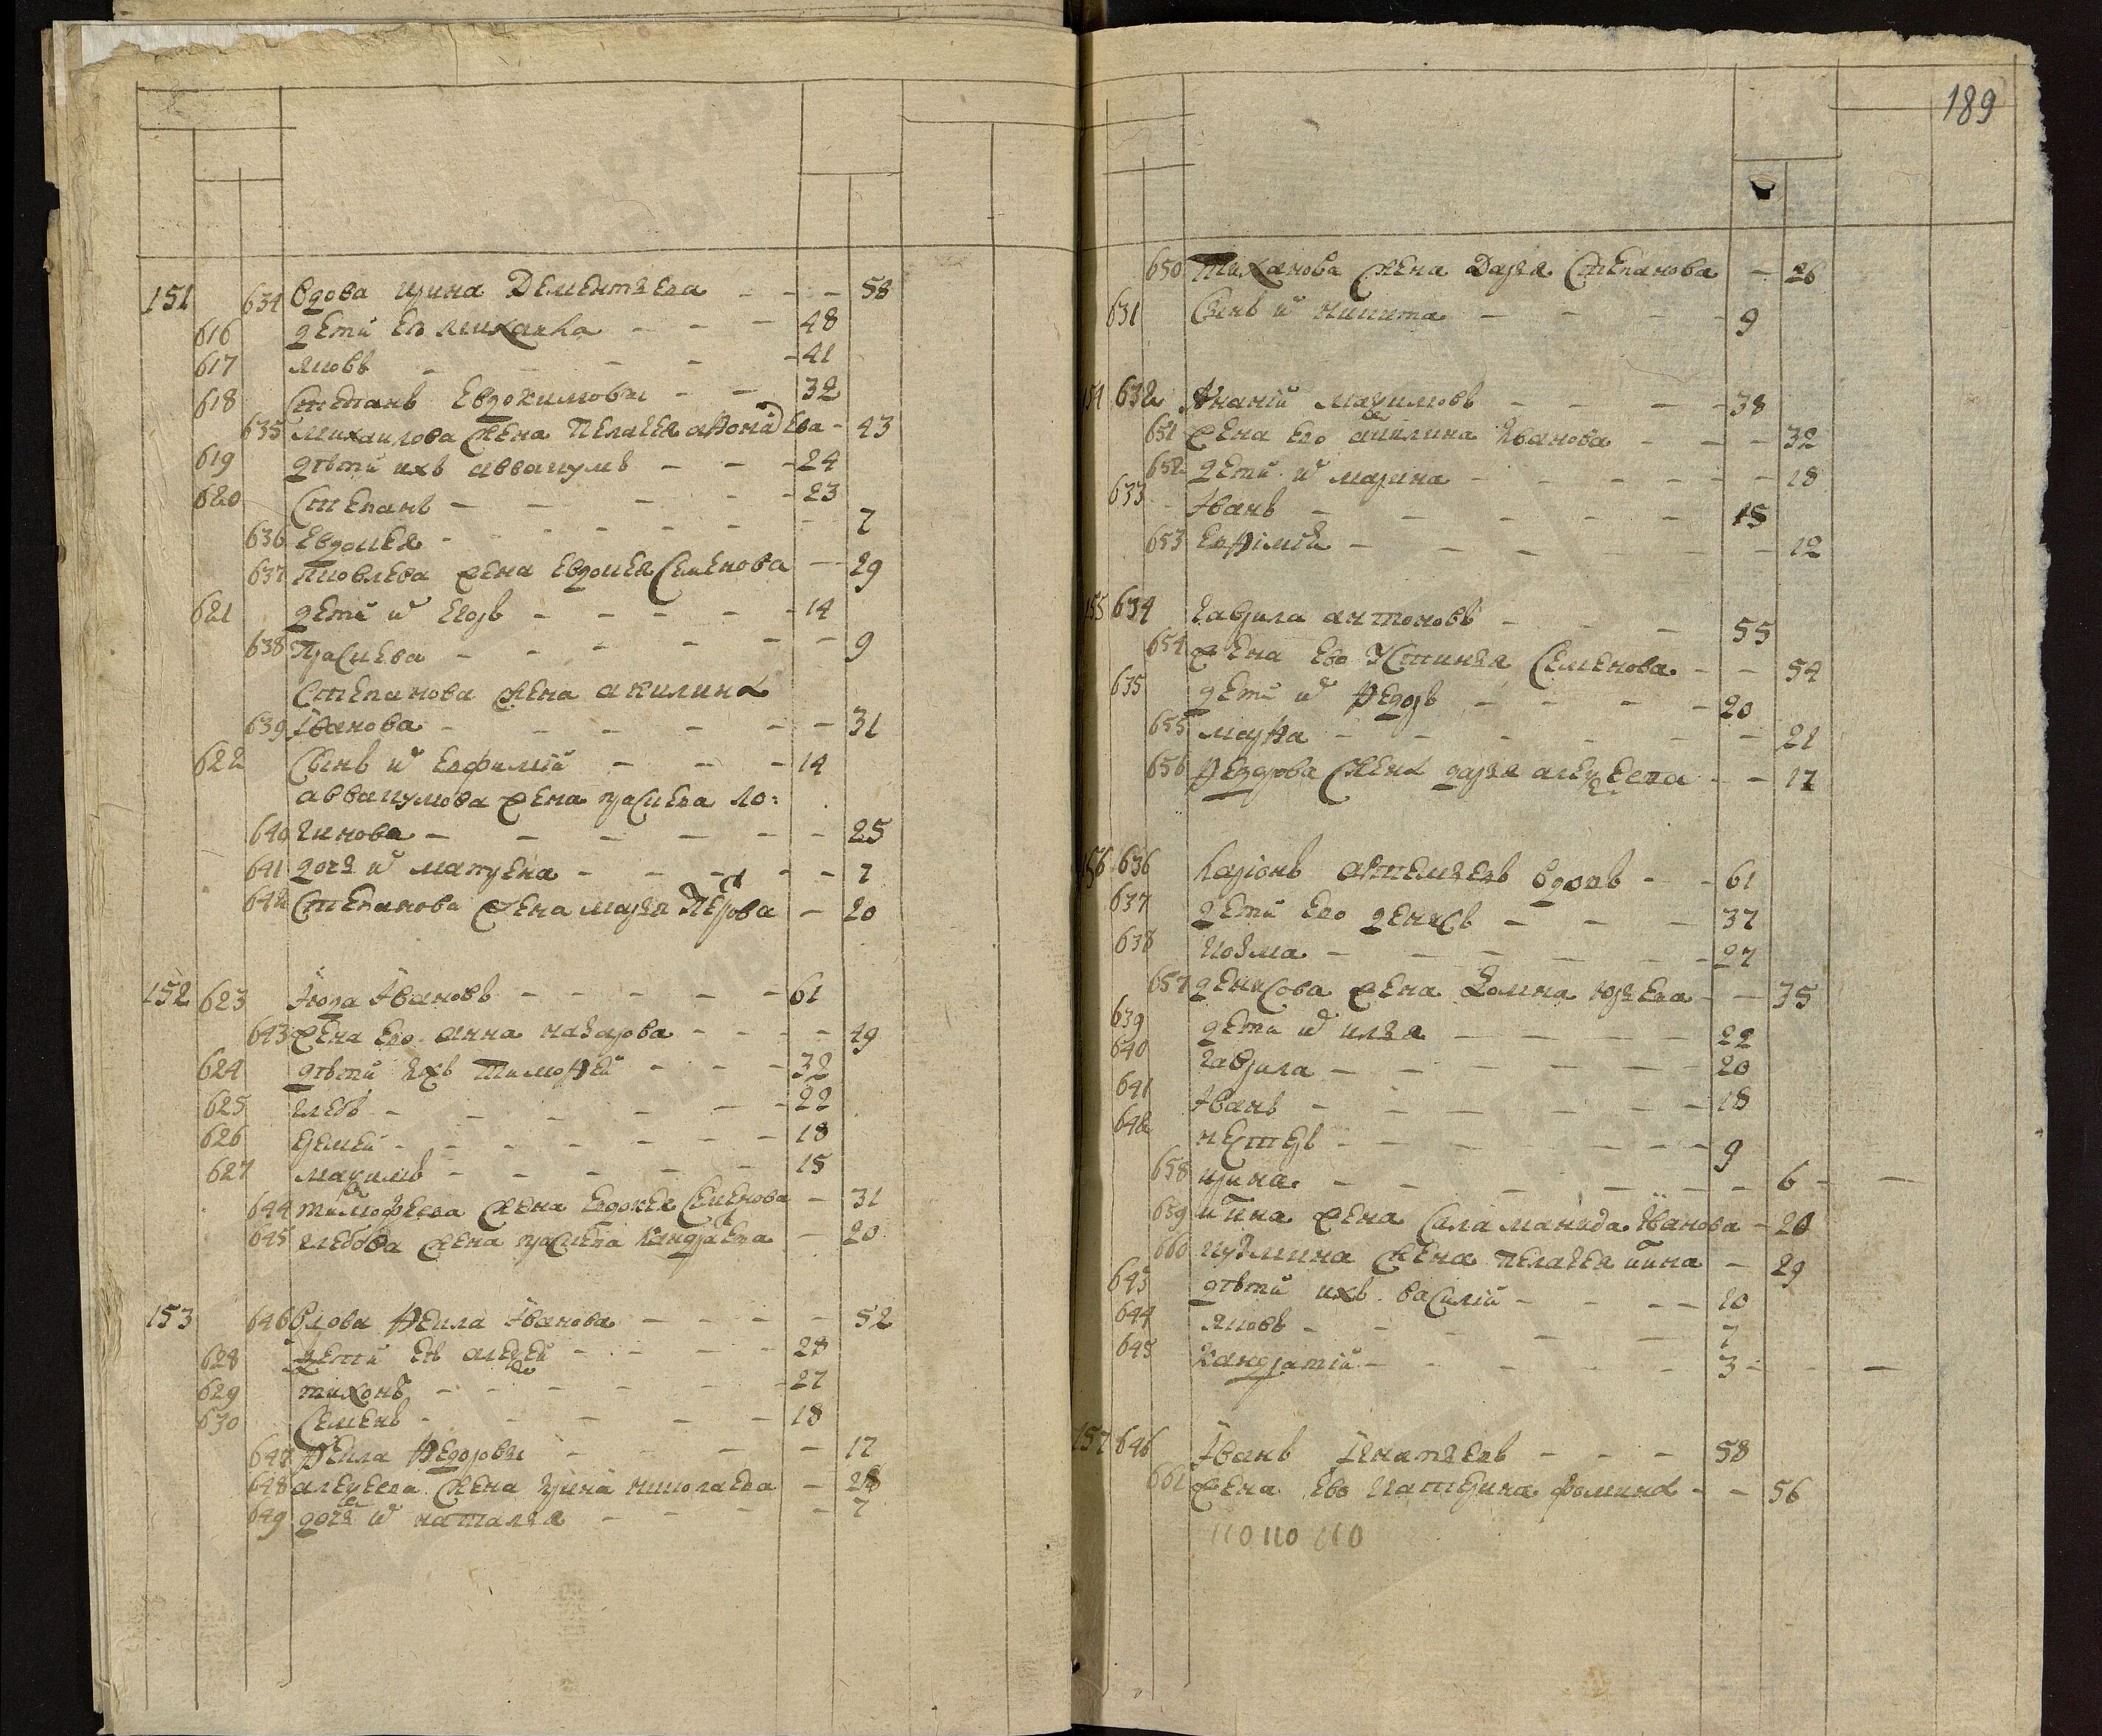 151 634 вдова ирина Дементьева - - - 58
616 дети ея михаила - - - 48
617 яковъ - - - 41
618 Степанъ Евдокимовы - - 32
635 михаилова жена Пелагея афонасева - 43
619 дѣти ихъ аввакумъ - - - 24
620 Степанъ - - - - 23
636 Евдокея - - - - - 7
637 яковлева жена Евдокея Семенова - 29
621 дети ѿ Егоръ - - - - - 14
638 Прасковя - - - - - 9
Степанова жена акилина
639 Іванова - - - - - 31
622 Сынъ ѿ ефимий - - - 14
аввакумова жена прасковя ло:
640 гинова - - - - - - 25
641 дочь ѿ матрена - - - - - 7
642 Степанова жена марья Петрова - 20
152 623 Іюда Івановъ - - - - - 61
643 жена ево анна назарова - - - - 49
624 дѣти ихъ тимофей - - - 32
625 глебъ - - - - - 22
626 еремей - - - - - - 18
627 максимъ - - - - - 15
644 тимофеева жена евдокея Семенова - 31
645 глебова жена прасковя кандратева - 20
153 646 вдова фекла Іванова - - - - 52
628 дети ея алексей - - - - 28
629 тихонъ - - - - - - 27
630 Семенъ - - - - - 18
647 фекла федоровы - - - - 17
648 алексеева жена ирина николаева - 28
649 дочь ѿ наталья - - - 7
189
650 Тиханова жена Дарья Степанова - 26
631 Сынъ ѿ никита - - - - 9
154 632 Ананій максимовъ - - - - 38
651 жена ево акилина Іванова - - - 32
652 дети ѿ марина - - - - - - 18
633 Іванъ - - - - - 15
653 ефимія - - - - - - 12
155 634 гаврила антоновъ - - - 55
654 жена ево Устинья Семенова - - 54
635 дети ѿ федоръ - - - - 20
655 марфа - - - - - - 21
656 федорова жена дарья алексеева - - 17
156 636 ларіонъ артемьевъ вдовъ - - 61
637 дети ево денисъ - - - 37
638 козма - - - - - - 27
657 денисова жена домна юрьева - - 35
639 дети ѿ илья - - - - 22
640 гаврила - - - - - - 20
641 Іванъ - - - - - - 18
642 нестеръ - - - - - - 9
658 ирина - - - - - - - 6 - -
659 ильина жена Саламанида Іванова - 20
660 кузмина жена пелагея ильина - 29
643 дѣти ихъ василий - - - - 10
644 яковъ - - - - - 7
645 кандратий - - - - - 3 - -
157 646 Іванъ Ігнатьевъ - - - 58
661 жена ево катерина фомина - - 56
110 110 110